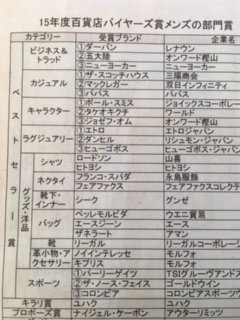 15年度百貨店バイヤーズ賞メンズの部門賞
カテゴリー 受賞ブランド 企業名
ベストセラー賞
ビジネス&トラッド ①ダーバン レナウン
②五大陸 オンワード樫山
③ニューヨーカー ニューヨーカー
カジュアル ①ザ・スコッチハウス 三陽商会
②マッキントッシュ 双日インフィニティ
③パパス パパス
キャラクター ①ポール・スミス ジョイックスコーポレー
②タケオキクチ ワールド
③ジョゼフ・オム オンワード樫山
ラグジュアリー ①エトロ エトロジャパン
②ダンヒル リシュモン・ジャパン
③ヒューゴボス ヒューゴボス・ジャパン
グッズ・洋品
シャツ ロードソン 山喜
ヒトヨシ ヒトヨシ
ネクタイ フランコ・スパダ 永島服飾
フェアファクス フェアファクスコレクテ
靴下・インナー シーク グンゼ
バッグ ペッレモルビダ ウエニ貿易
エースジーン エース
ザネラート アマン
靴 リーガル リーガルコーポレー
革小物・アクセサリー ノイインテレッセ モルフォ
キプリス モルフォ
スポーツ ①パーリーゲイツ TSIグルーヴアンドス
②ザ・ノース・フェイス ゴールドウイン
③コロンビア コロンビアスポーツウ
キラリ賞 ユハク ユハク
プロポーズ賞 ナイジェル・ケーボン アウターリミッツ